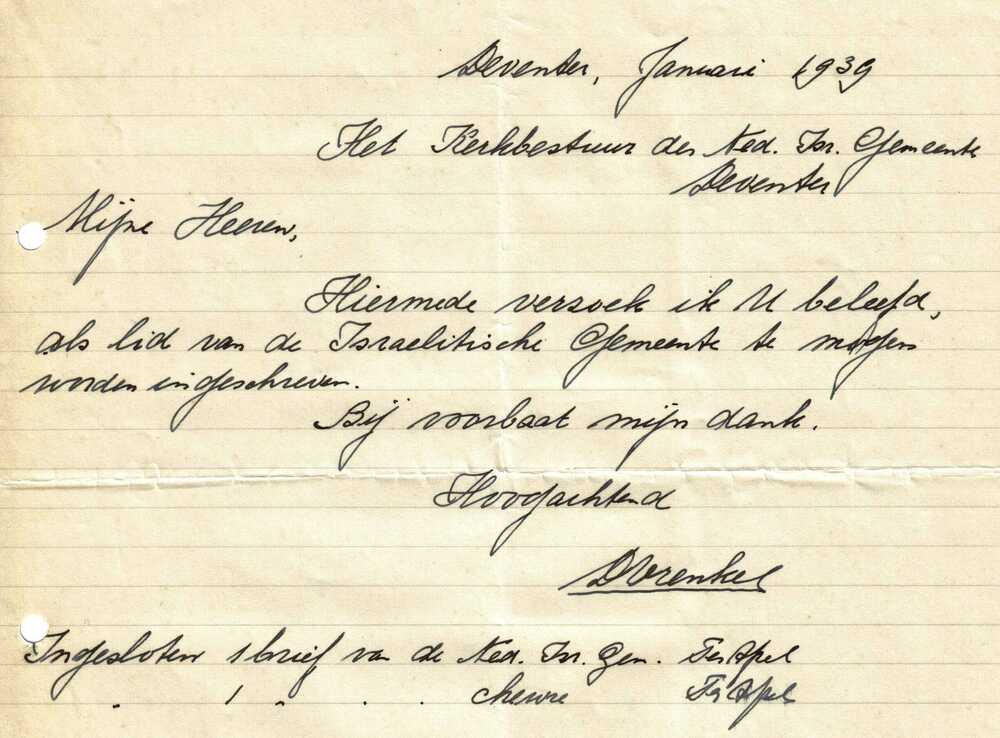 Deventer, Januari 1939
Het Kerkbestuur der Ned. Isr. Gemeente
Deventer
Mijne Heeren,
Hiermede verzoek ik U beleefd,
als lid van de Israelitische Gemeente te mogen
worden ingeschreven.
Bij voorbaat mijn dank.
Hoogachtend
Ingesloten 1 brief van de Ned. Isr. Gem. Ter Apel
„ 1 „ . . chewre Ter Apel